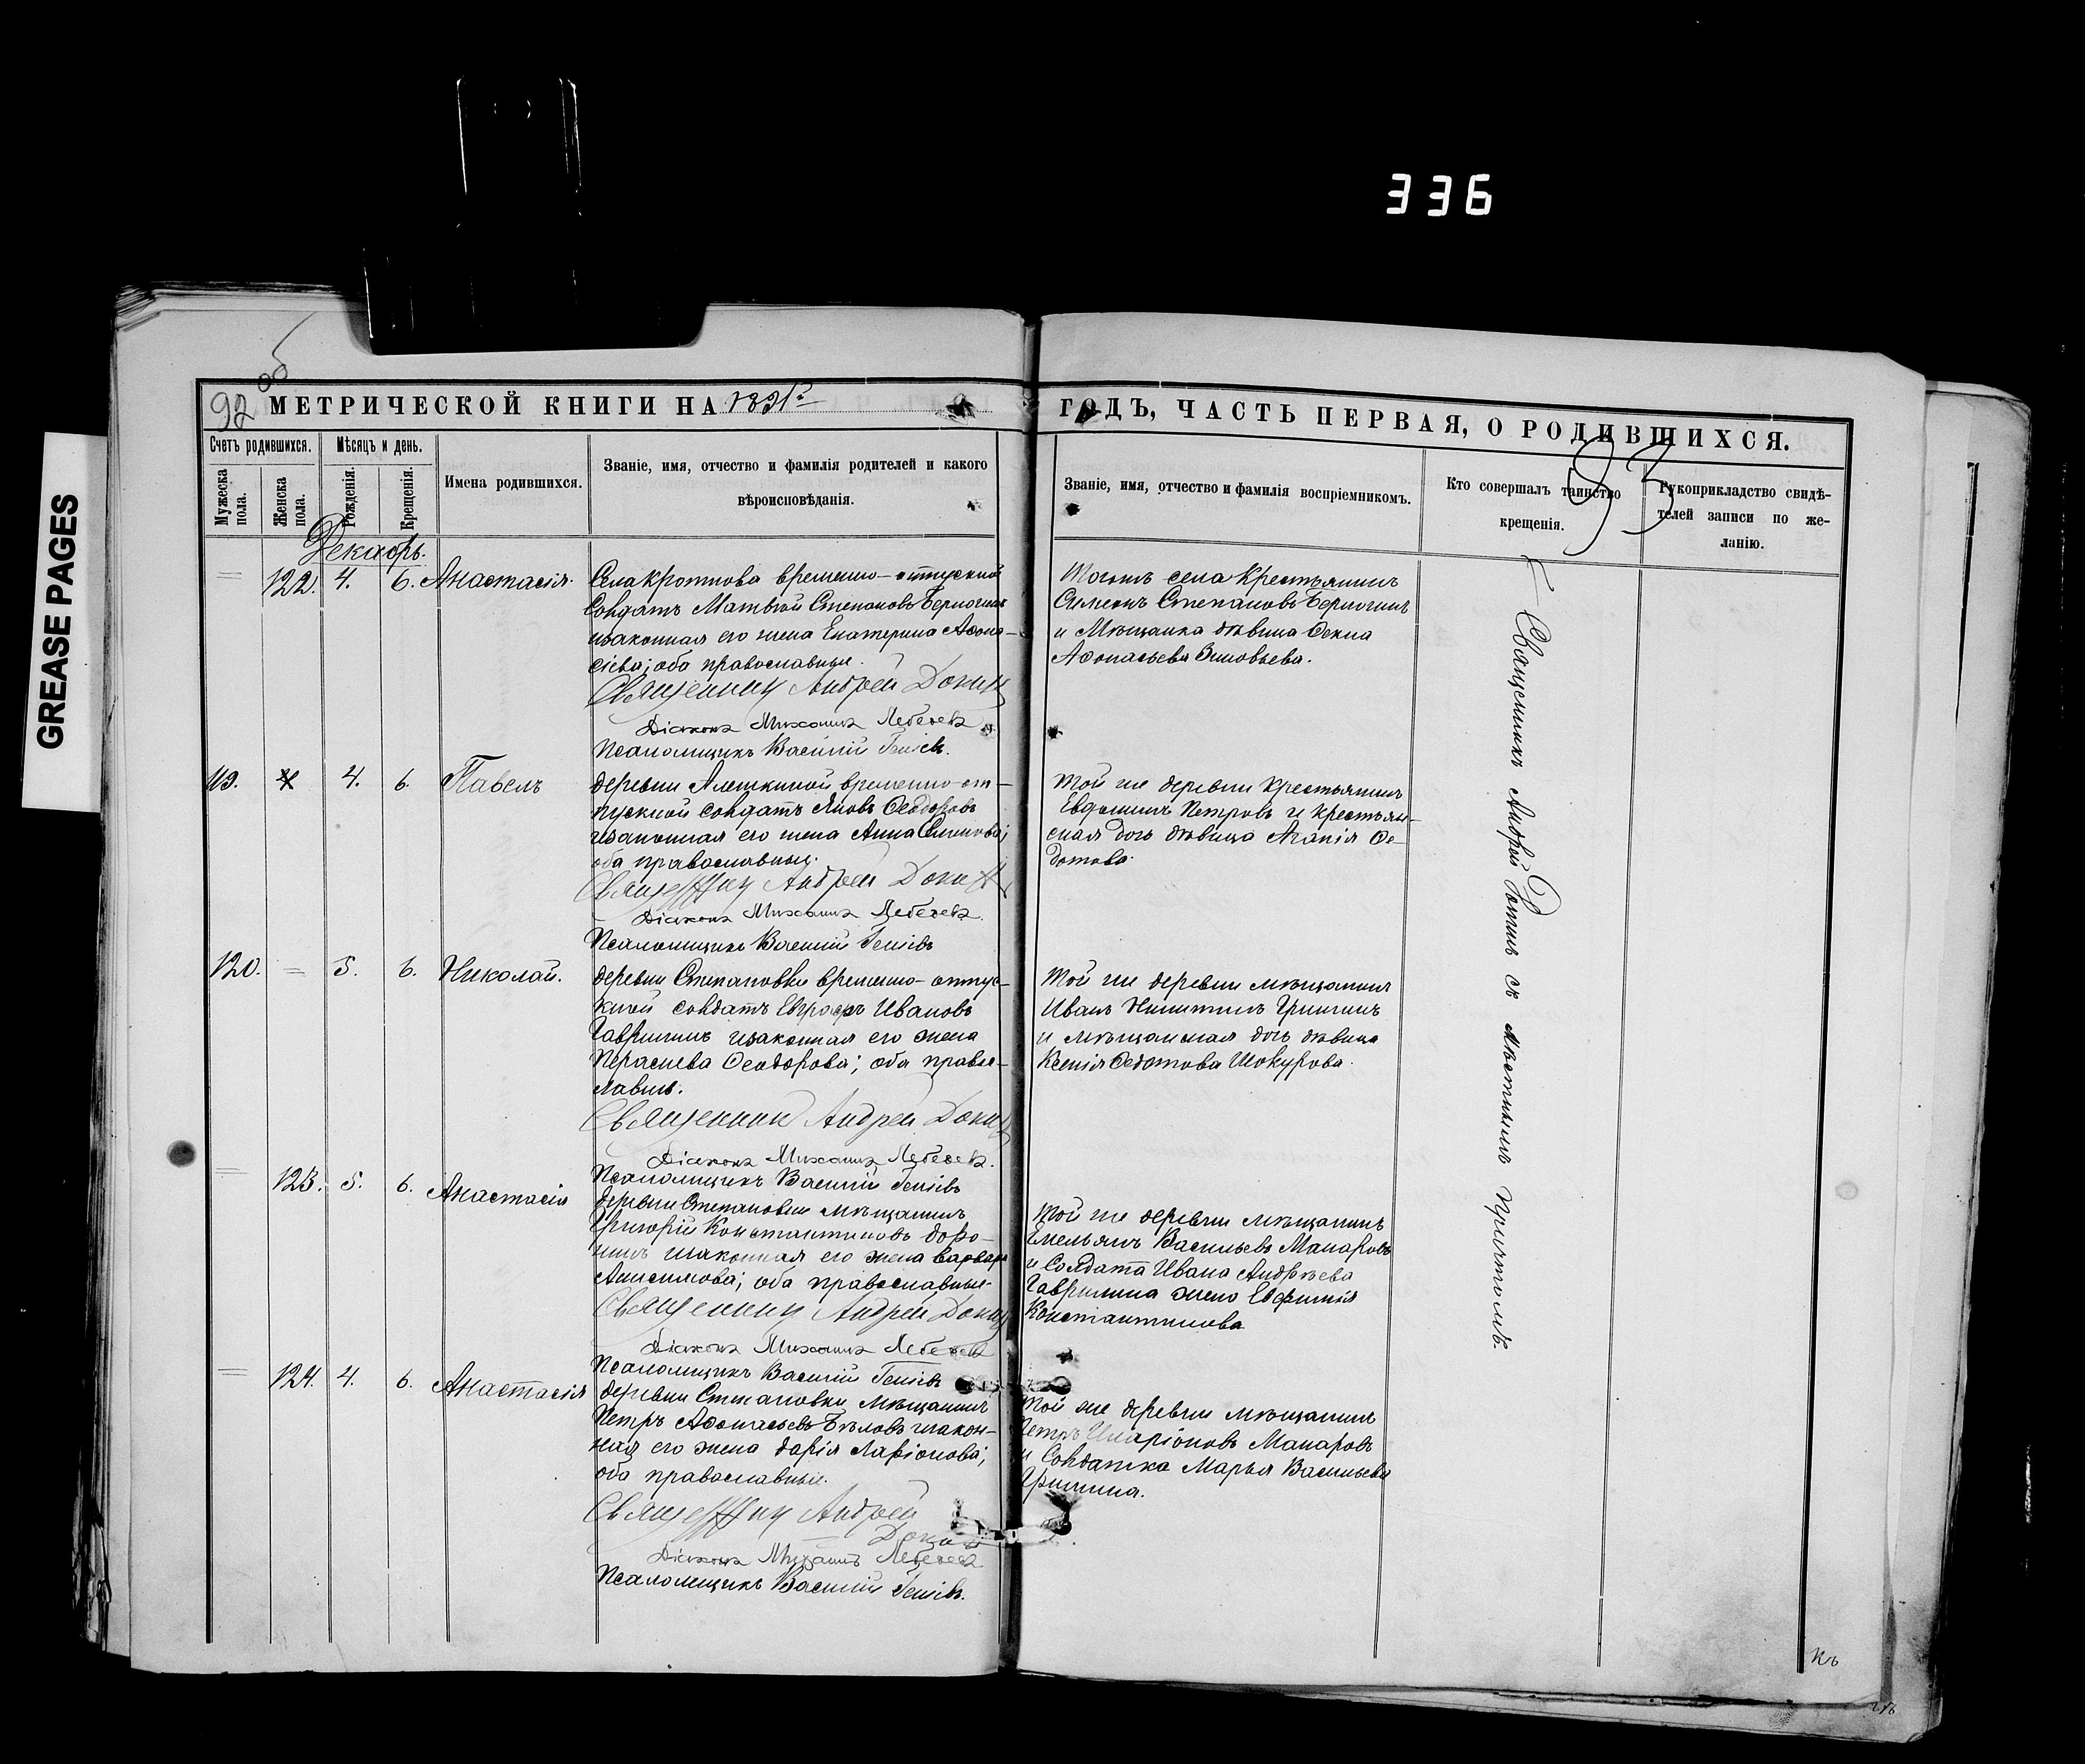 336
GREASE PAGES
92 об
МЕТРИЧЕСКОЙ КНИГИ НА 1891 г.
ГОДЪ, ЧАСТЬ ПЕРВАЯ, О РОДИВШИХСЯ.
93
Счетъ родившихся.
Мужеска пола.
Женска пола.
Мѣсяцъ и день.
Рожденія.
Крещенія.
Имена родившихся.
Званіе, имя, отчество и фамилія родителей и какого
вѣроисповѣданія.
Званіе, имя, отчество и фамилія воспріемниковъ.
Кто совершалъ таинство
крещенія.
Рукоприкладство свидѣ-
телей записи по же-
ланію.
Декабрь.
122. 4. 6. Анастасія.
Села Кроткова временно-отпускной
Солдатъ Матвѣй Степановъ
и законная его жена Екатерина Афона-
сіева; оба православные.
Священник Андрей
Діаконъ Михаилъ Лебедевъ
Псаломщикъ Василій
Тогожъ села Крестьянинъ
Симеонъ Степановъ
и Мѣщанка дѣвица Фекла
Афонасьева Зиновьева.
119. 4. 6. Павелъ
деревни Алешкиной временно-от-
пускной солдатъ Яковъ Феодоровъ
и законная его жена Анна
оба православные.
Священник Андрей
Діаконъ Михаилъ Лебедевъ.
Псаломщикъ Василій
Той же деревни Крестьянинъ
Евдокимъ Петровъ и крестьян-
ская дочь дѣвица Агапія Фе-
дотова.
120. 5. 6. Николай.
деревни Степановки временно-отпус-
кной солдатъ Евграфъ Ивановъ
Гаврилинъ и законная его жена
Параскева Феодорова; оба право-
славные.
Священник Андрей
Діаконъ Михаилъ Лебедевъ.
Псаломщикъ Василій
Той же деревни мѣщанинъ
Иванъ Никитинъ Гришинъ
и мѣщанская дочь дѣвица
Ксенія Федотова Шокурова.
123. 5. 6. Анастасія
деревни Степановки мѣщанинъ
Григорій Константиновъ Доро-
нинъ и законная его жена Варвара
Анисимова; оба православные.
Священник Андрей
Діаконъ Михаилъ Лебедевъ
Псаломщикъ Василій
Той же деревни мѣщанинъ
Емельянъ Васильевъ Макаровъ
и Солдата Ивана Андреева
Гаврилина жена Евфимія
Константинова
124. 4. 6. Анастасія
деревни Степановки мѣщанинъ
Петръ Афонасьевъ Бѣловъ и закон-
ная его жена Дарія Ларіонова;
оба православные.
Священник Андрей
Діаконъ Михаилъ Лебедевъ
Псаломщикъ Василій
Той же деревни мѣщанинъ
Петръ Иларіоновъ Макаровъ
и Солдатка Марья Васильева
Гришина.
Священникъ Андрей съ мѣстнымъ причтомъ.